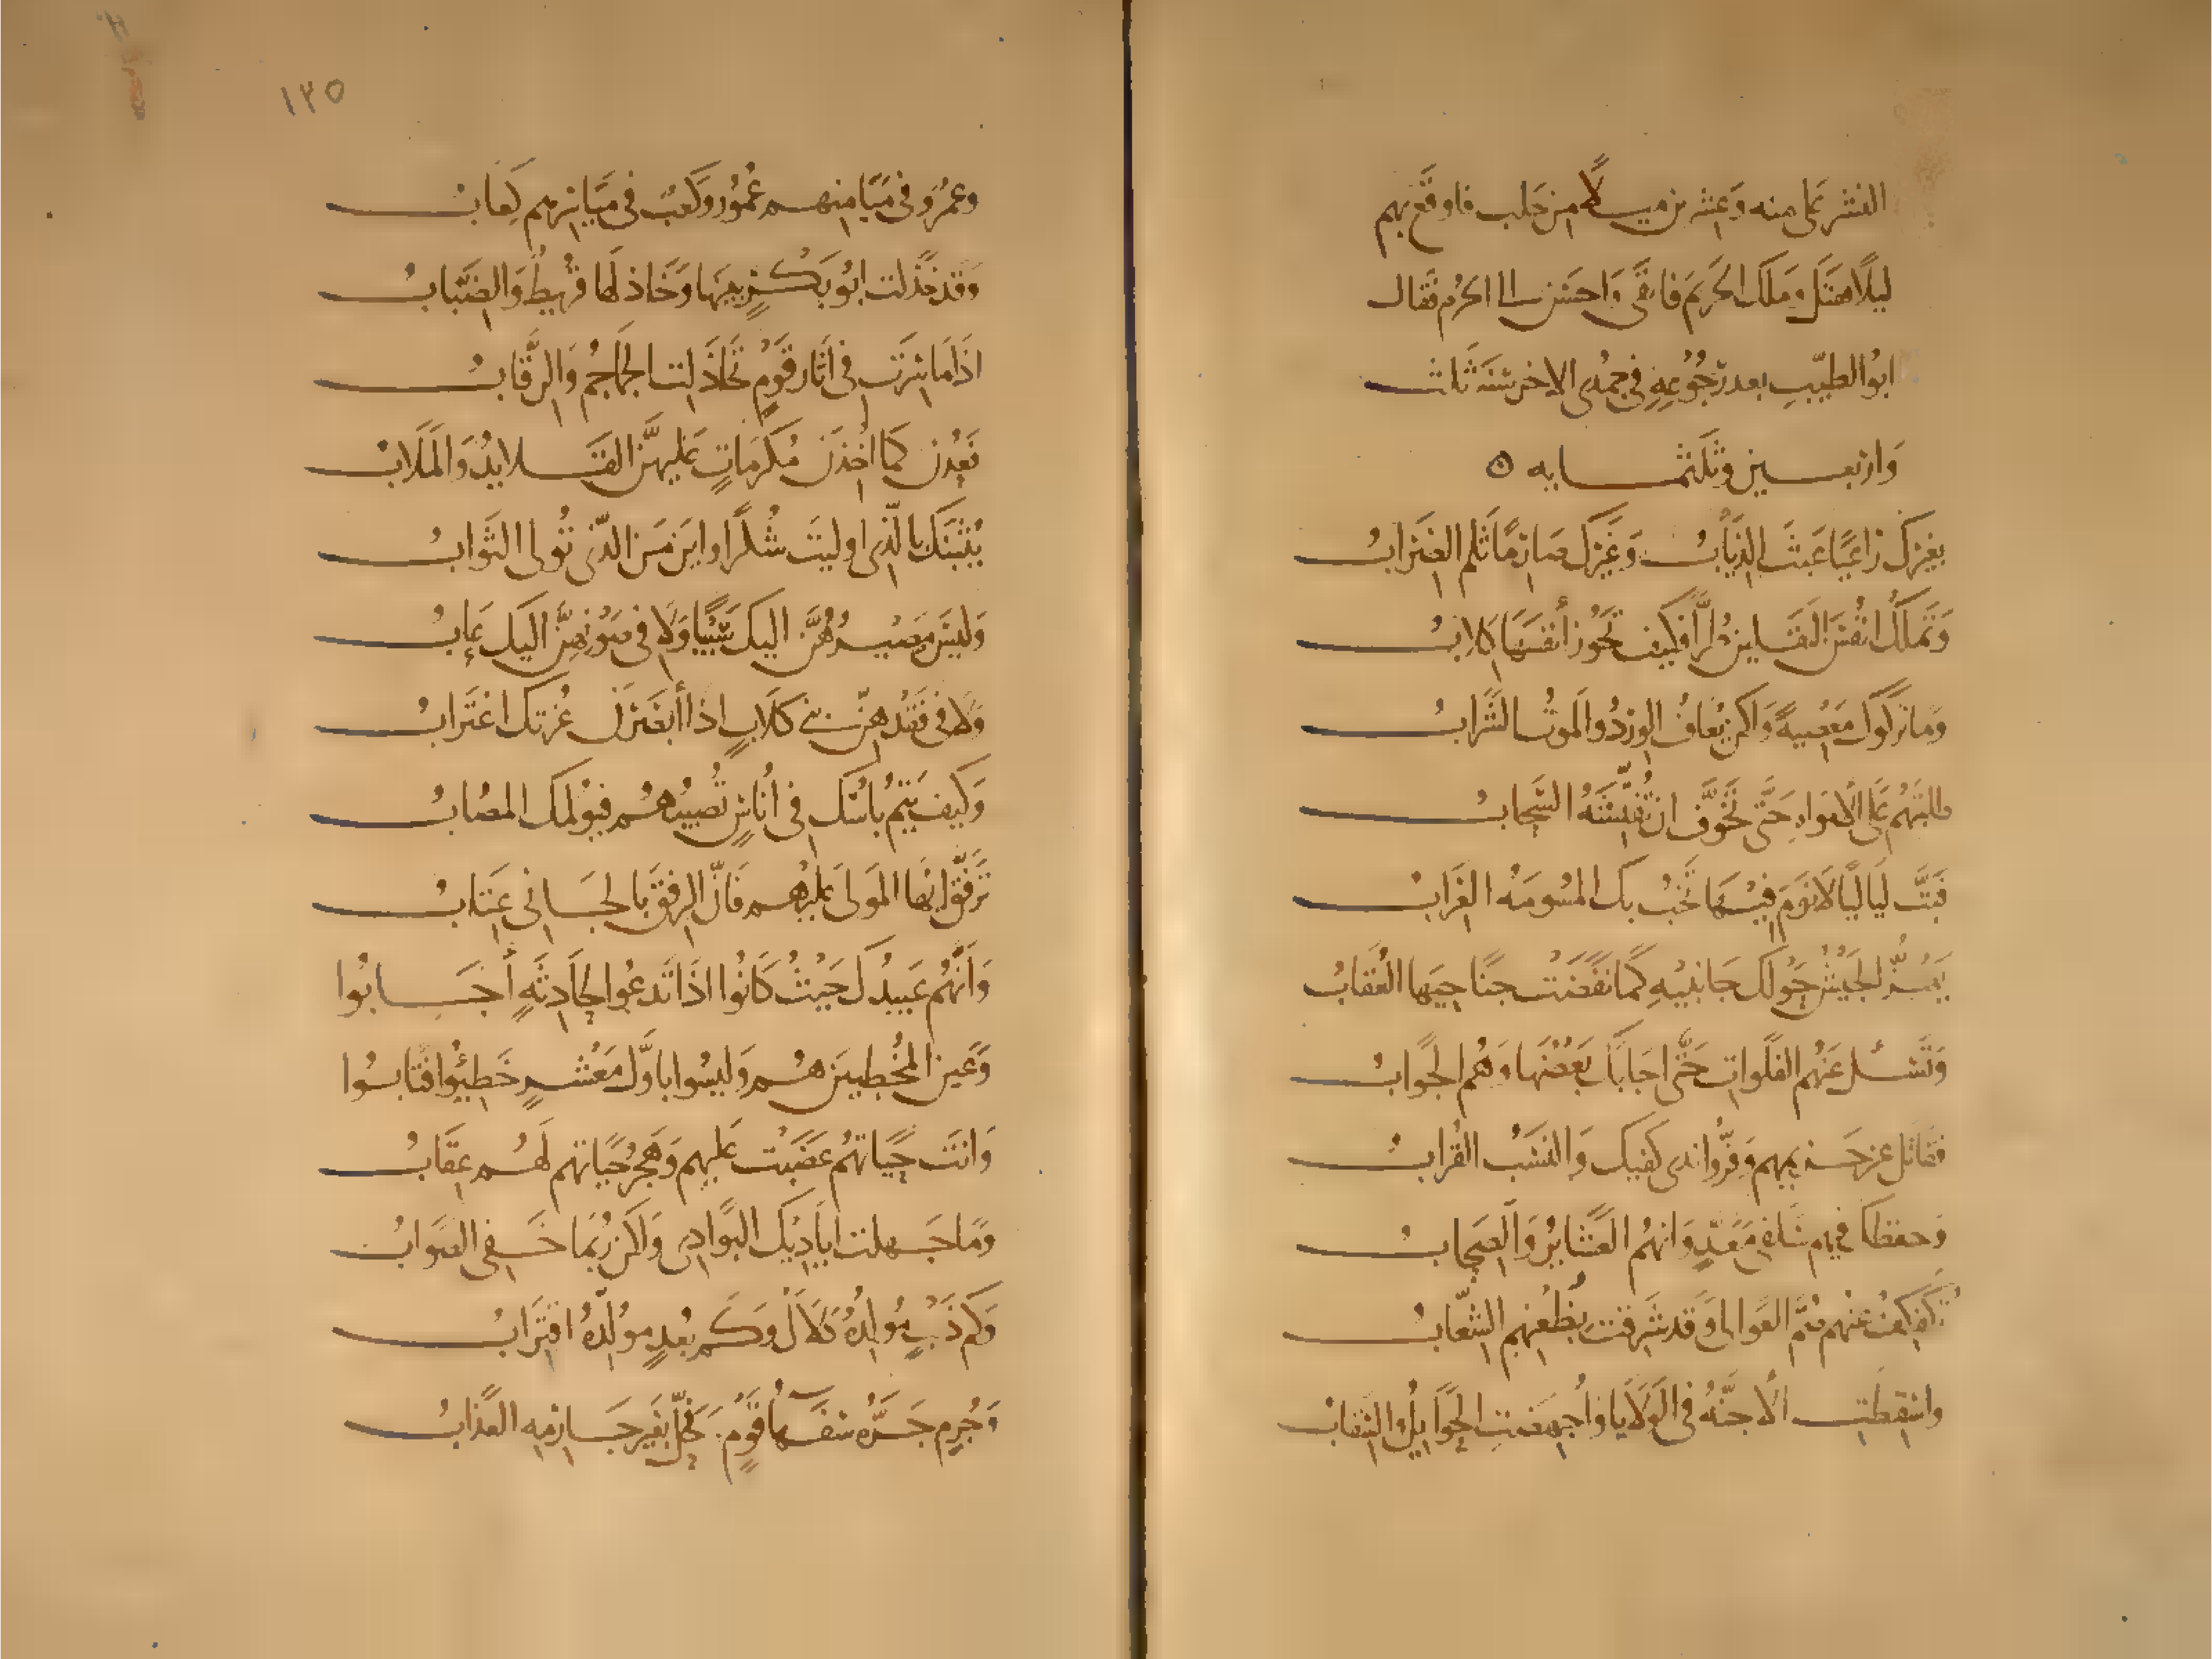 النشر على مئه وعشرين ميلا من حلب فاوقع بهم
ليلا فقتل وملك الحريم فابقى واحسن الى الحرم فقال
ابو الطيب بعد رجوعه في جمدى الاخر سنة ثلث
واربعين وثلثمايه ه
بغيرك راعيًا عبث الذيابُ وغيرك صارمًا ثلم الضرابُ
وتملك انفس الثقلين طرًّا فكيف تحوز أنفسها كلابُ
وما تركوك معصيةً ولكن يُعاف الورد والموت الشرابُ
طلبتهم على الامواه حتى تخوّف ان تفتّشه السحابُ
فبتّ لياليًا لا نوم فيها تخبّ بك المسومه العرابُ
يهزّ الجيش حولك جانبيه كما نفضت جناحيها العقابُ
وتسئل عنهم الفلوات حتى اجابك بعضها وهم الجوابُ
فقاتل عن حريمهم وفرّوا ندى كفيك والنسب القرابُ
وحفظك فيهم سلفي معدٍّ وانهم العشاير والصحابُ
تكفكف عنهم صمّ العوالى وقد شرقت بظعنهم الشعابُ
واسقطت الاجنّه في الولايا واجهضت الحوايل والسقابُ
١٣٥
وعمرو في ميامنهم عُمُورٌ وكعبٌ في مياسرهم كعابُ
وقد خذلت ابو بكرٍ بنيها وخاذلها قُريطٌ والضبابُ
اذا ما سرت في اثار قومٍ تخاذلت الجماجم والرقابُ
فعُدن كما اُخذن مكرماتٍ عليهنّ القلايد والملابُ
يثبنك بالّذي اوليت شكرًا واين من الذّي تُولى الثوابُ
وليس مصيرهنّ اليك شيئًا ولا في صونهنّ اليك عابُ
ولا في فقدهنّ بني كلابٍ اذا أبصرن غرتك اغترابُ
وكيف يتمّ باسك في أناسٍ تُصيبهم فيولمك المصابُ
ترفّق ايها المولى عليهم فانّ الرفق بالجاني عتابُ
وانّهم عبيدك حيث كانوا اذا تدعوا لحادثةٍ أجابوا
وعين المخطين هم وليسوا باوّل معشرٍ خطئوا فتابوا
وانت حياتهم غضبت عليهم وهجر حياتهم لهم عقابُ
وما جهلت اياديك البوادى ولكن ربما خفى الصوابُ
وكم ذنبٍ مولّده دلالٌ وكم بُعدٍ مولّده اقترابُ
وجُرمٍ جرّه سفهاُ قومٍ فحلّ بغير جارمه العذابُ